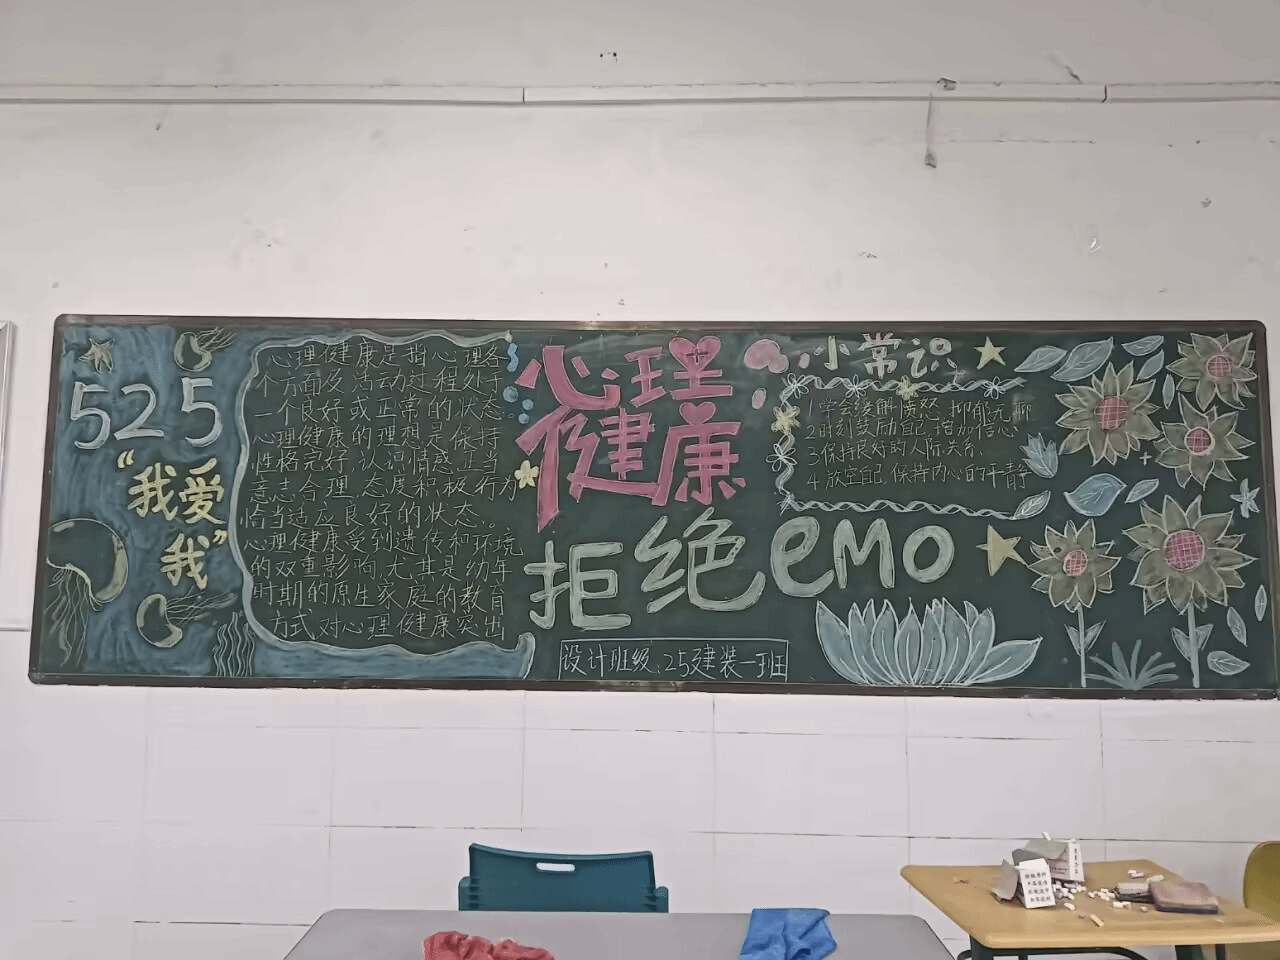 525
“我爱
我”
心理健康是指心理各
个方面及活动过程处于
一个良好或正常的状态。
心理健康的理想是保持
性格完好、认识情感正当
意志合理、态度积极、行为
恰当适应良好的状态。
心理健康受到遗传和环境
的双重影响,尤其是幼年
时期的原生家庭的教育
方式对心理健康突出
心理
健康
拒绝emo
设计班级:25建装一班
小常识
1学会缓解愤怒、抑郁无聊
2时刻鼓励自己增加信心
3保持良好的人际关系、
4放空自己,保持内心的平静